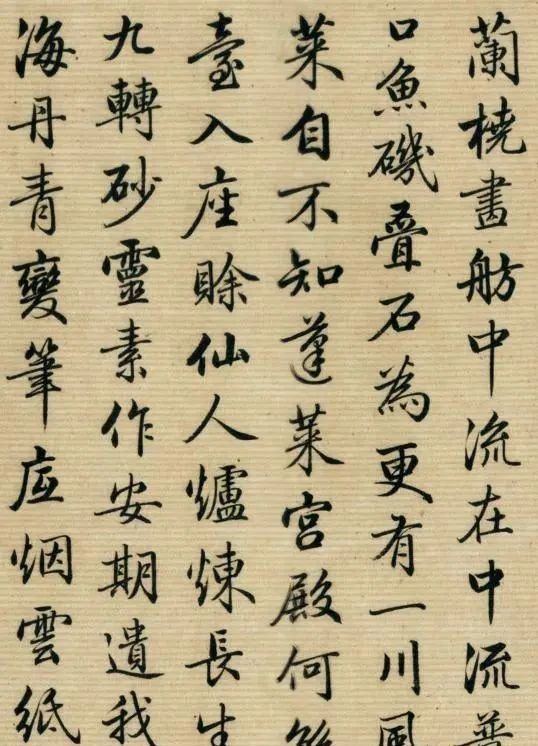 蘭橈畵舫中流在中流
口魚磯疊石為更有一川風
菜自不知蓬菜宮殿何
臺入座賒仙人爐煉長生
九轉砂靈素作安期遺我
海丹青變筆底烟雲紙